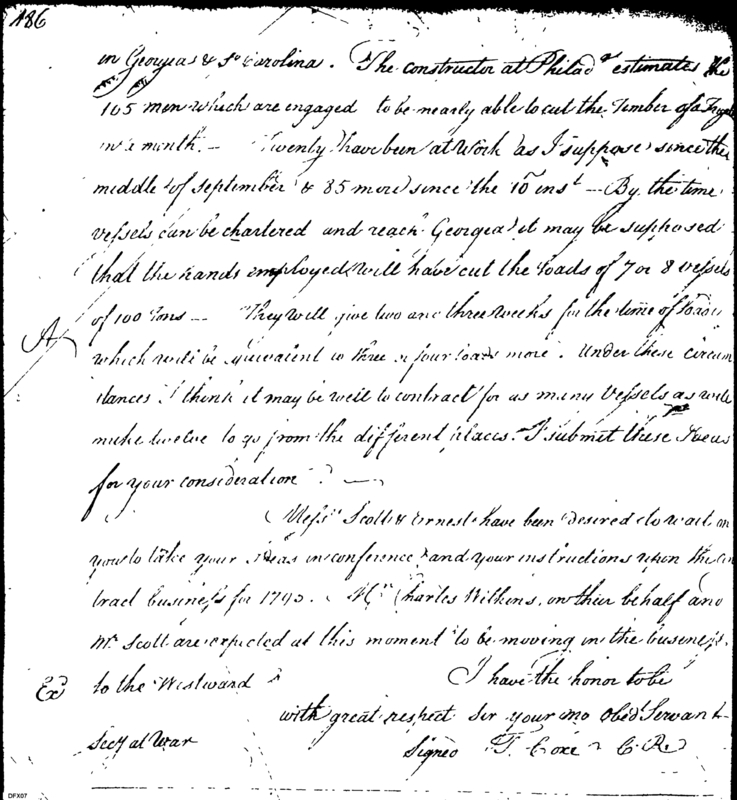 186
in Georgia & So Carolina. The constructor at Philada estimates the
105 men which are engaged to be nearly able to cut the Timber of a Frigate
in a month. — Twenty have been at Work as I suppose since the
middle of September & 85 more since the 10 inst — By the time
vessels can be chartered and reach Georgea it may be supposed
that the hands employed will have cut the loads of 7 or 8 vessels
of 100 Tons — They will give two and three weeks for the time of
A
which will be equivalent to three or four loads more. Under these circum
stances I think it may be well to contract for as many Vessels as will
make twelve to go from the different places. I submet these Ideas
for your consideration —
Messrs Scott & Ernest have been desired to wait on
you to take your Ideas in conference and your instructions upon the con
tract business for 1795. Mr Charles Wilkins, on their behalf and
Mr Scott are expected at this moment to be moving in the business
Exd to the Westward
I have the honor to be
with great respect Sir your mo Obedt Servant
Secy at War
Signed T. Coxe C. R.
DFX07